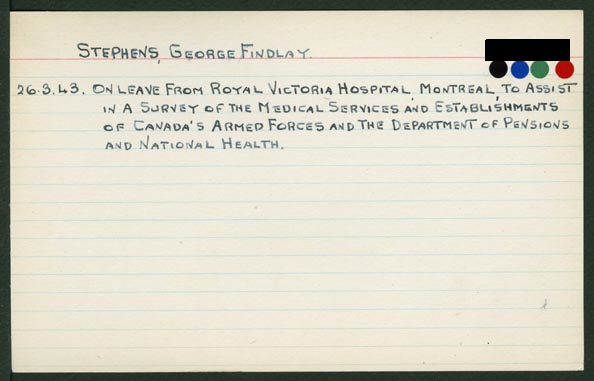 STEPHENS, GEORGE FINDLAY.
26.3.43. ON LEAVE FROM ROYAL VICTORIA HOSPITAL, MONTREAL, TO ASSIST
IN A SURVEY OF THE MEDICAL SERVICES AND ESTABLISHMENTS
OF CANADA'S ARMED FORCES AND THE DEPARTMENT OF PENSIONS
AND NATIONAL HEALTH.